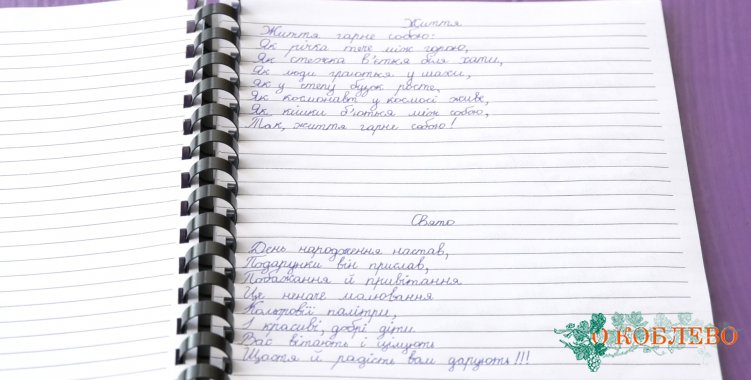 Життя
Життя гарне собою:
Як річка тече між горою,
Як стежка в'ється біля хати,
Як люди граються у шахи,
Як у степу бузок росте,
Як космонавт у космосі живе,
Як кішки б'ються між собою,
Так, життя гарне собою!
Свято
День народження настав,
Подарунки він прислав,
Побажання й привітання
Це неначе малювання
Кольорові палітри,
І красиві, добрі діти
Вас вітають і цілують
Щастя й радість вам дарують!!!
О КОБЛЕВО